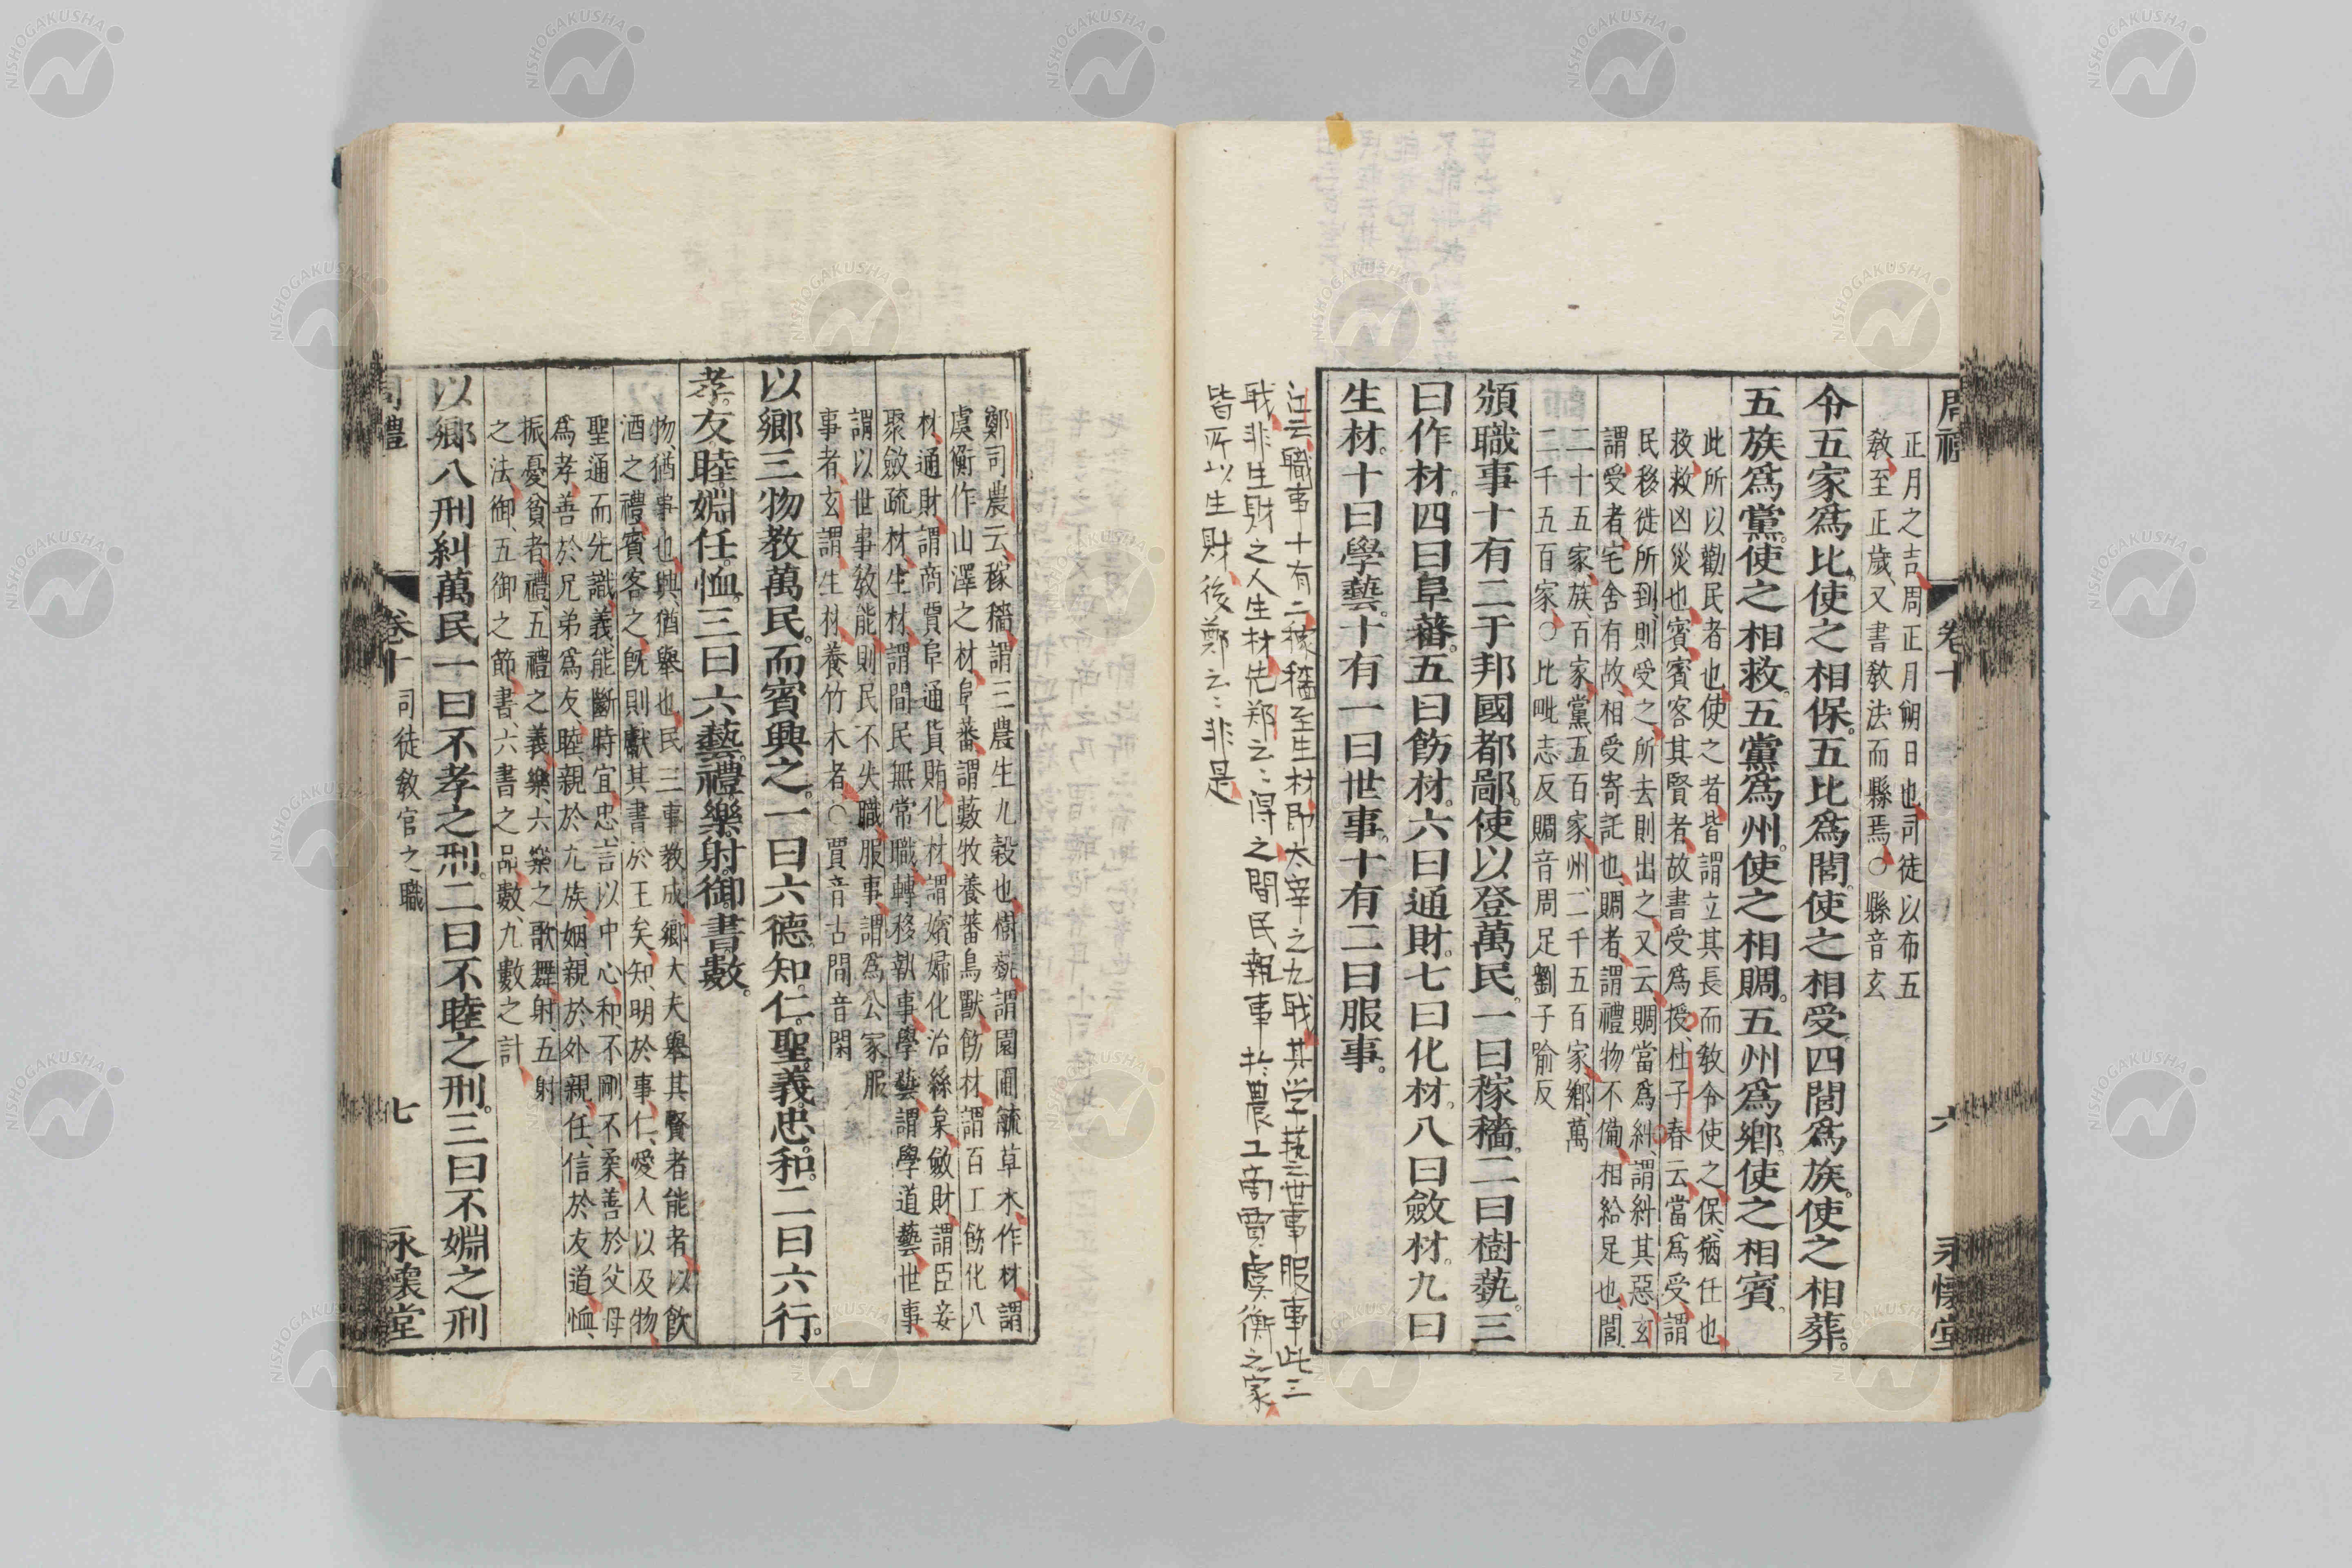 周禮 卷十 六 永懷堂
正月之吉、周正月朔日也、司徒以布五
敎、至正歲、又書敎法而縣焉、○縣音玄
令五家爲比。使之相保。五比爲閭。使之相受。四閭爲族。使之相葬。
五族爲黨。使之相救。五黨爲州。使之相賙。五州爲鄉。使之相賓。
此所以勸民者也、使之者、皆謂立其長而敎令使之、保、猶任也
救、救凶災也、賓、賓客其賢者、故書受爲授、杜子春云、當爲受、謂
民移徙所到、則受之、所去則出之、又云、賙當爲糾、謂糾其惡、玄
謂受者、宅舍有故、相受寄託也、賙者、謂禮物不備、相給足也、閭、
二十五家、族、百家、黨、五百家、州、二千五百家、鄉、萬
二千五百家、○比毗志反賙音周足劉子喻反
頒職事十有二于邦國都鄙。使以登萬民。一曰稼穡。二曰樹蓺。三
曰作材。四曰阜蕃。五曰飭材。六曰通財。七曰化材。八曰斂材。九曰
生材。十曰學藝。十有一曰世事。十有二曰服事。
注云職事十有二稼穡至生材即太宰之九職其学藝世事服事此三
職非生財之人生材先郑云〻得之間民執事於農工商賈虞衡之家
皆所以生財後鄭云〻非是
鄭司農云、稼穡、謂三農生九穀也、樹蓺、謂園圃毓草木、作材、謂
虞衡作山澤之材、阜蕃、謂藪牧養蕃鳥獸、飭材、謂百工飭化八
材、通財、謂商賈阜通貨賄、化材、謂嬪婦化治絲枲、斂財、謂臣妾
聚斂疏材、生材、謂間民無常職、轉移執事、學藝、謂學道藝、世事、
謂以世事敎能、則民不失職、服事、謂爲公家服
事者、玄謂、生材、養竹木者、○賈音古間音閑
以鄉三物敎萬民。而賓興之。一曰六德。知。仁。聖。義。忠。和。二曰六行。
孝。友。睦。婣。任。恤。三曰六藝。禮。樂。射。御。書。數。
物、猶事也、興、猶舉也、民三事敎成、鄉大夫舉其賢者能者、以飮
酒之禮、賓客之、旣則獻其書於王矣、知、明於事、仁、愛人以及物、
聖通而先識、義能斷時宜、忠、言以中心、和、不剛不柔、善於父母
爲孝、善於兄弟爲友、睦、親於九族、姻、親於外親、任、信於友道、恤、
振憂貧者、禮、五禮之義、樂、六樂之歌舞、射、五射
之法、御、五御之節、書、六書之品、數、九數之計、
以鄉八刑糾萬民一曰不孝之刑。二曰不睦之刑。三曰不婣之刑
周禮 卷十 司徒敎官之職 七 永懷堂